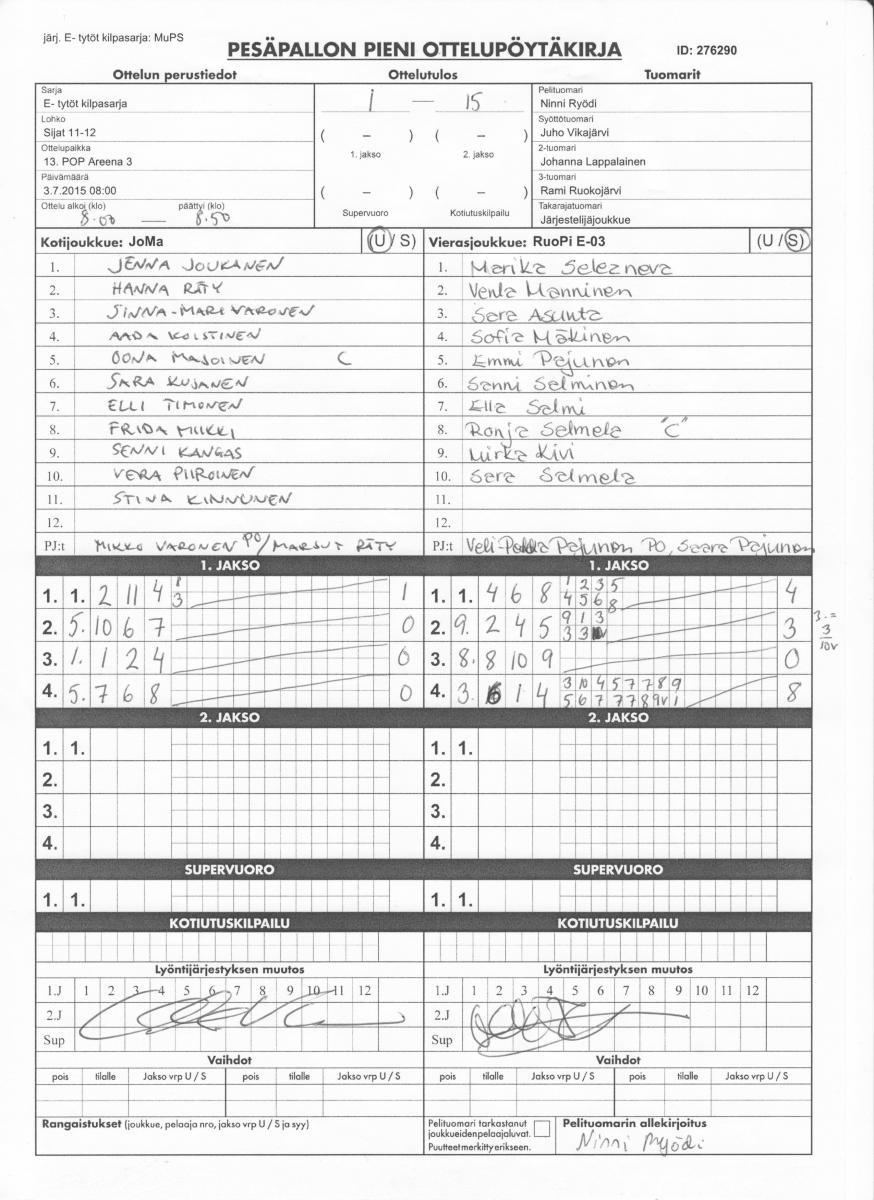 järj. E- tytöt kilpasarja: MuPS
PESÄPALLON PIENI OTTELUPÖYTÄKIRJA
ID: 276290
Ottelun perustiedot
Ottelutulos
Tuomarit
Sarja
E- tytöt kilpasarja
Lohko
Sijat 11-12
Ottelupaikka
13. POP Areena 3
Päivämäärä
3.7.2015 08:00
Ottelu alkoi (klo) päättyi (klo)
8.00 — 8.50
1 — 15
( – ) ( – )
1. jakso 2. jakso
( – ) ( – )
Supervuoro Kotiutuskilpailu
Pelituomari
Ninni Ryödi
Syöttötuomari
Juho Vikajärvi
2-tuomari
Johanna Lappalainen
3-tuomari
Rami Ruokojärvi
Takarajatuomari
Järjestelijäjoukkue
Kotijoukkue: JoMa (U / S)
1. JENNA JOUKANEN
2. HANNA RÄTY
3. SINNA-MARI VARONEN
4. AADA KOISTINEN
5. OONA MASOINEN C
6. SARA KUJANEN
7. ELLI TIMONEN
8. FRIDA MIIKKI
9. SENNI KANGAS
10. VERA PIIROINEN
11. STINA KINNUNEN
12.
PJ:t MIKKO VARONEN PO / MARJUT RÄTY
Vierasjoukkue: RuoPi E-03 (U / S)
1. Marika Selezneva
2. Venla Manninen
3. Sara Asunta
4. Sofia Mäkinen
5. Emmi Pajunen
6. Sanni Salminen
7. Ella Salmi
8. Ronja Salmela "C"
9. Mirka Kivi
10. Sara Salmela
11.
12.
PJ:t Veli-Pekka Pajunen PO, Saara Pajunen
1. JAKSO
1. 1. 2 11 4 8 3 1
2. 5. 10 6 7 0
3. 1. 1 2 4 0
4. 5. 7 6 8 0
1. JAKSO
1. 1. 4 6 8 1 2 3 5 4
4 5 6 8
2. 9. 2 4 5 9 1 3 3
3 3
3. 8. 8 10 9 0
4. 3. 6 1 4 3 10 4 5 7 7 8 9 8
5 6 7 7 7 8 9v 1
3. =
3
10v
2. JAKSO
1. 1.
2.
3.
4.
2. JAKSO
1. 1.
2.
3.
4.
SUPERVUORO
1. 1.
SUPERVUORO
1. 1.
KOTIUTUSKILPAILU
KOTIUTUSKILPAILU
Lyöntijärjestyksen muutos
1.J 1 2 3 4 5 6 7 8 9 10 11 12
2.J
Sup
Lyöntijärjestyksen muutos
1.J 1 2 3 4 5 6 7 8 9 10 11 12
2.J
Sup
Vaihdot
pois tilalle Jakso vrp U / S pois tilalle Jakso vrp U / S
Vaihdot
pois tilalle Jakso vrp U / S pois tilalle Jakso vrp U / S
Rangaistukset (joukkue, pelaaja nro, jakso vrp U / S ja syy)
Pelituomari tarkastanut
joukkueidenpelaajaluvat.
Puutteetmerkittyerikseen.
Pelituomarin allekirjoitus
Ninni Ryödi